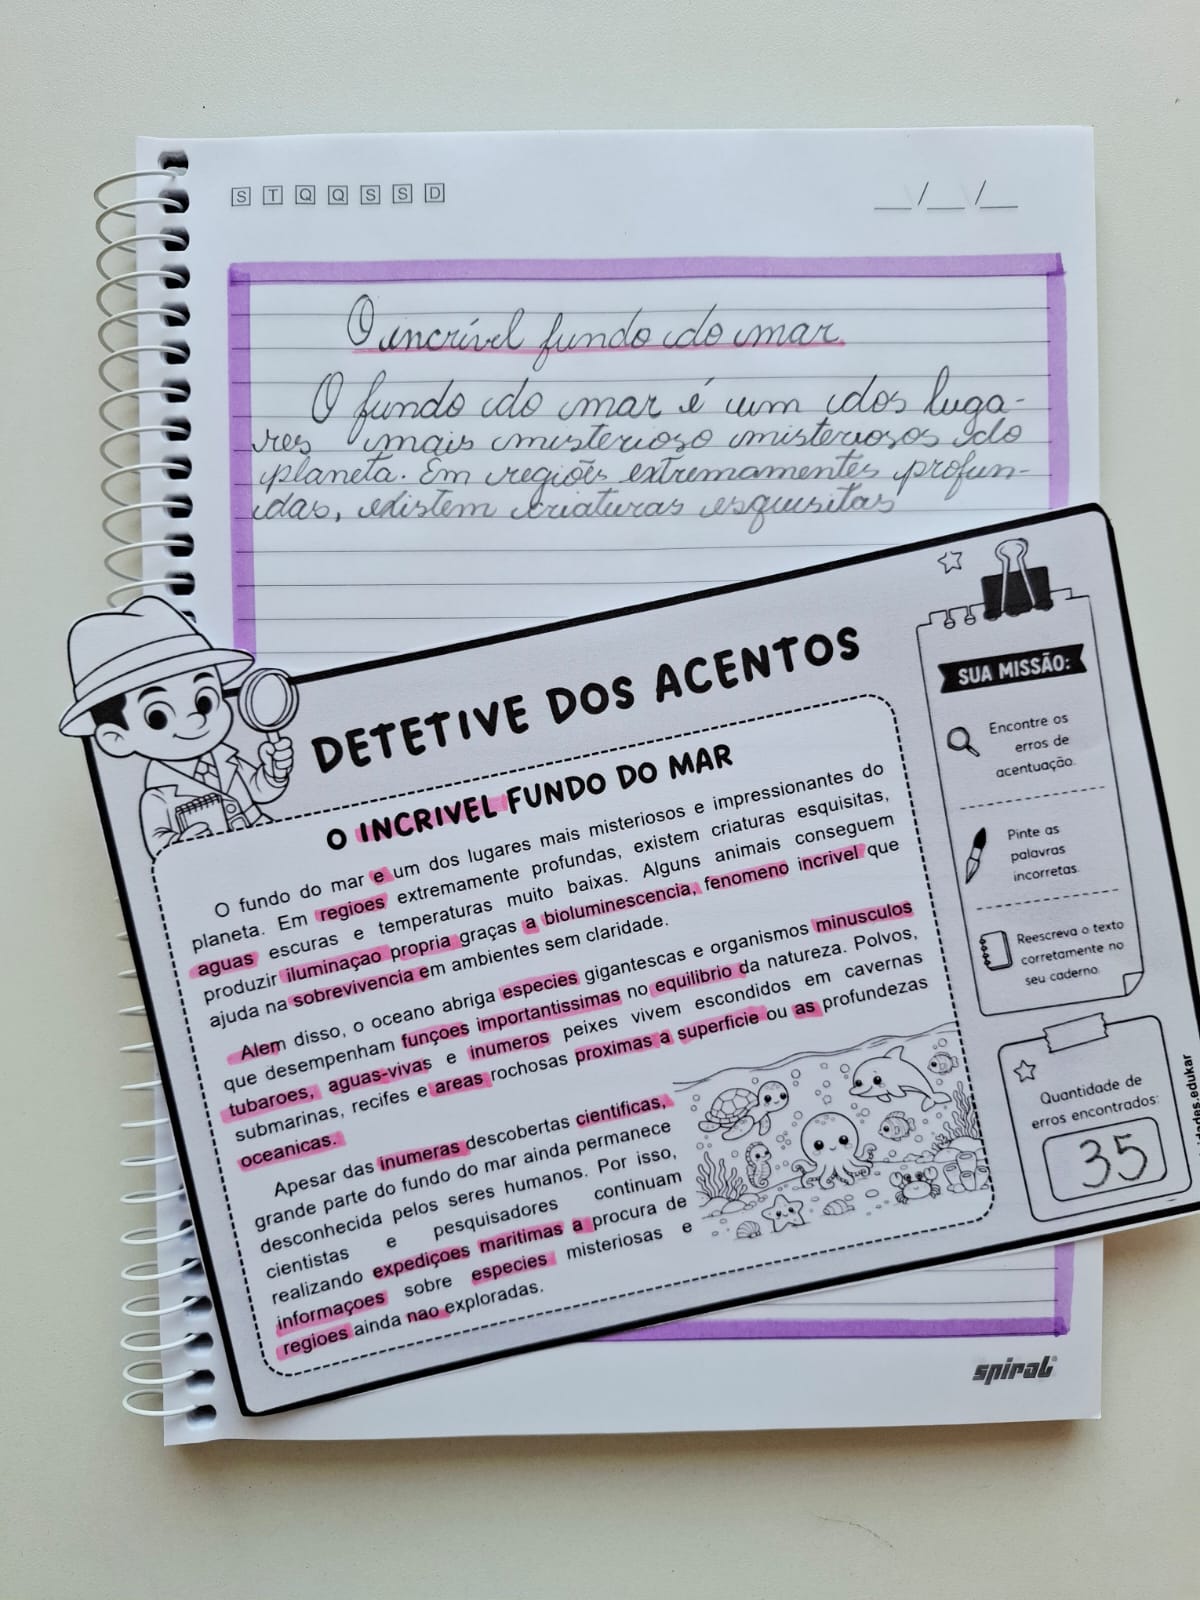 S T Q Q S S D
__/__/__
O incrível fundo do mar
O fundo do mar é um dos luga-
res mais misterioso misteriosos do
planeta. Em regiões extremamentes profun-
das, existem criaturas esquisitas
DETETIVE DOS ACENTOS
O INCRIVEL FUNDO DO MAR
O fundo do mar e um dos lugares mais misteriosos e impressionantes do
planeta. Em regioes extremamente profundas, existem criaturas esquisitas,
aguas escuras e temperaturas muito baixas. Alguns animais conseguem
produzir iluminaçao propria graças a bioluminescencia, fenomeno incrivel que
ajuda na sobrevivencia em ambientes sem claridade.
Alem disso, o oceano abriga especies gigantescas e organismos minusculos
que desempenham funçoes importantissimas no equilibrio da natureza. Polvos,
tubaroes, aguas-vivas e inumeros peixes vivem escondidos em cavernas
submarinas, recifes e areas rochosas proximas a superficie ou as profundezas
oceanicas.
Apesar das inumeras descobertas cientificas,
grande parte do fundo do mar ainda permanece
desconhecida pelos seres humanos. Por isso,
cientistas e pesquisadores continuam
realizando expediçoes maritimas a procura de
informaçoes sobre especies misteriosas e
regioes ainda nao exploradas.
SUA MISSÃO:
Encontre os
erros de
acentuação.
Pinte as
palavras
incorretas.
Reescreva o texto
corretamente no
seu caderno.
Quantidade de
erros encontrados:
35
spiral